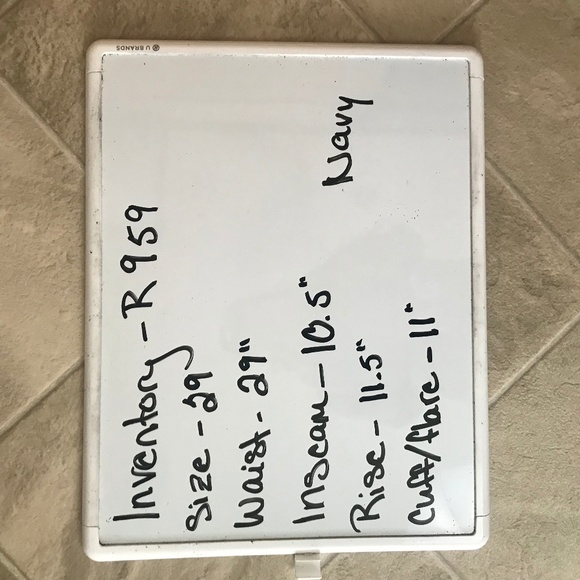 Inventory - R959
Size - 29
Waist - 29"
Inseam - 10.5"
Navy
Rise - 11.5"
Cuff/flare - 11"
U BRANDS